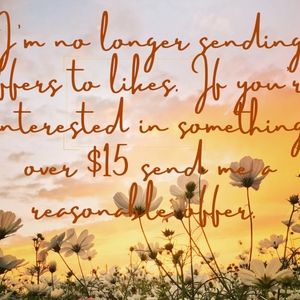 I'm no longer sending
offers to likes. If you're
interested in something
over $15 send me a
reasonable offer.